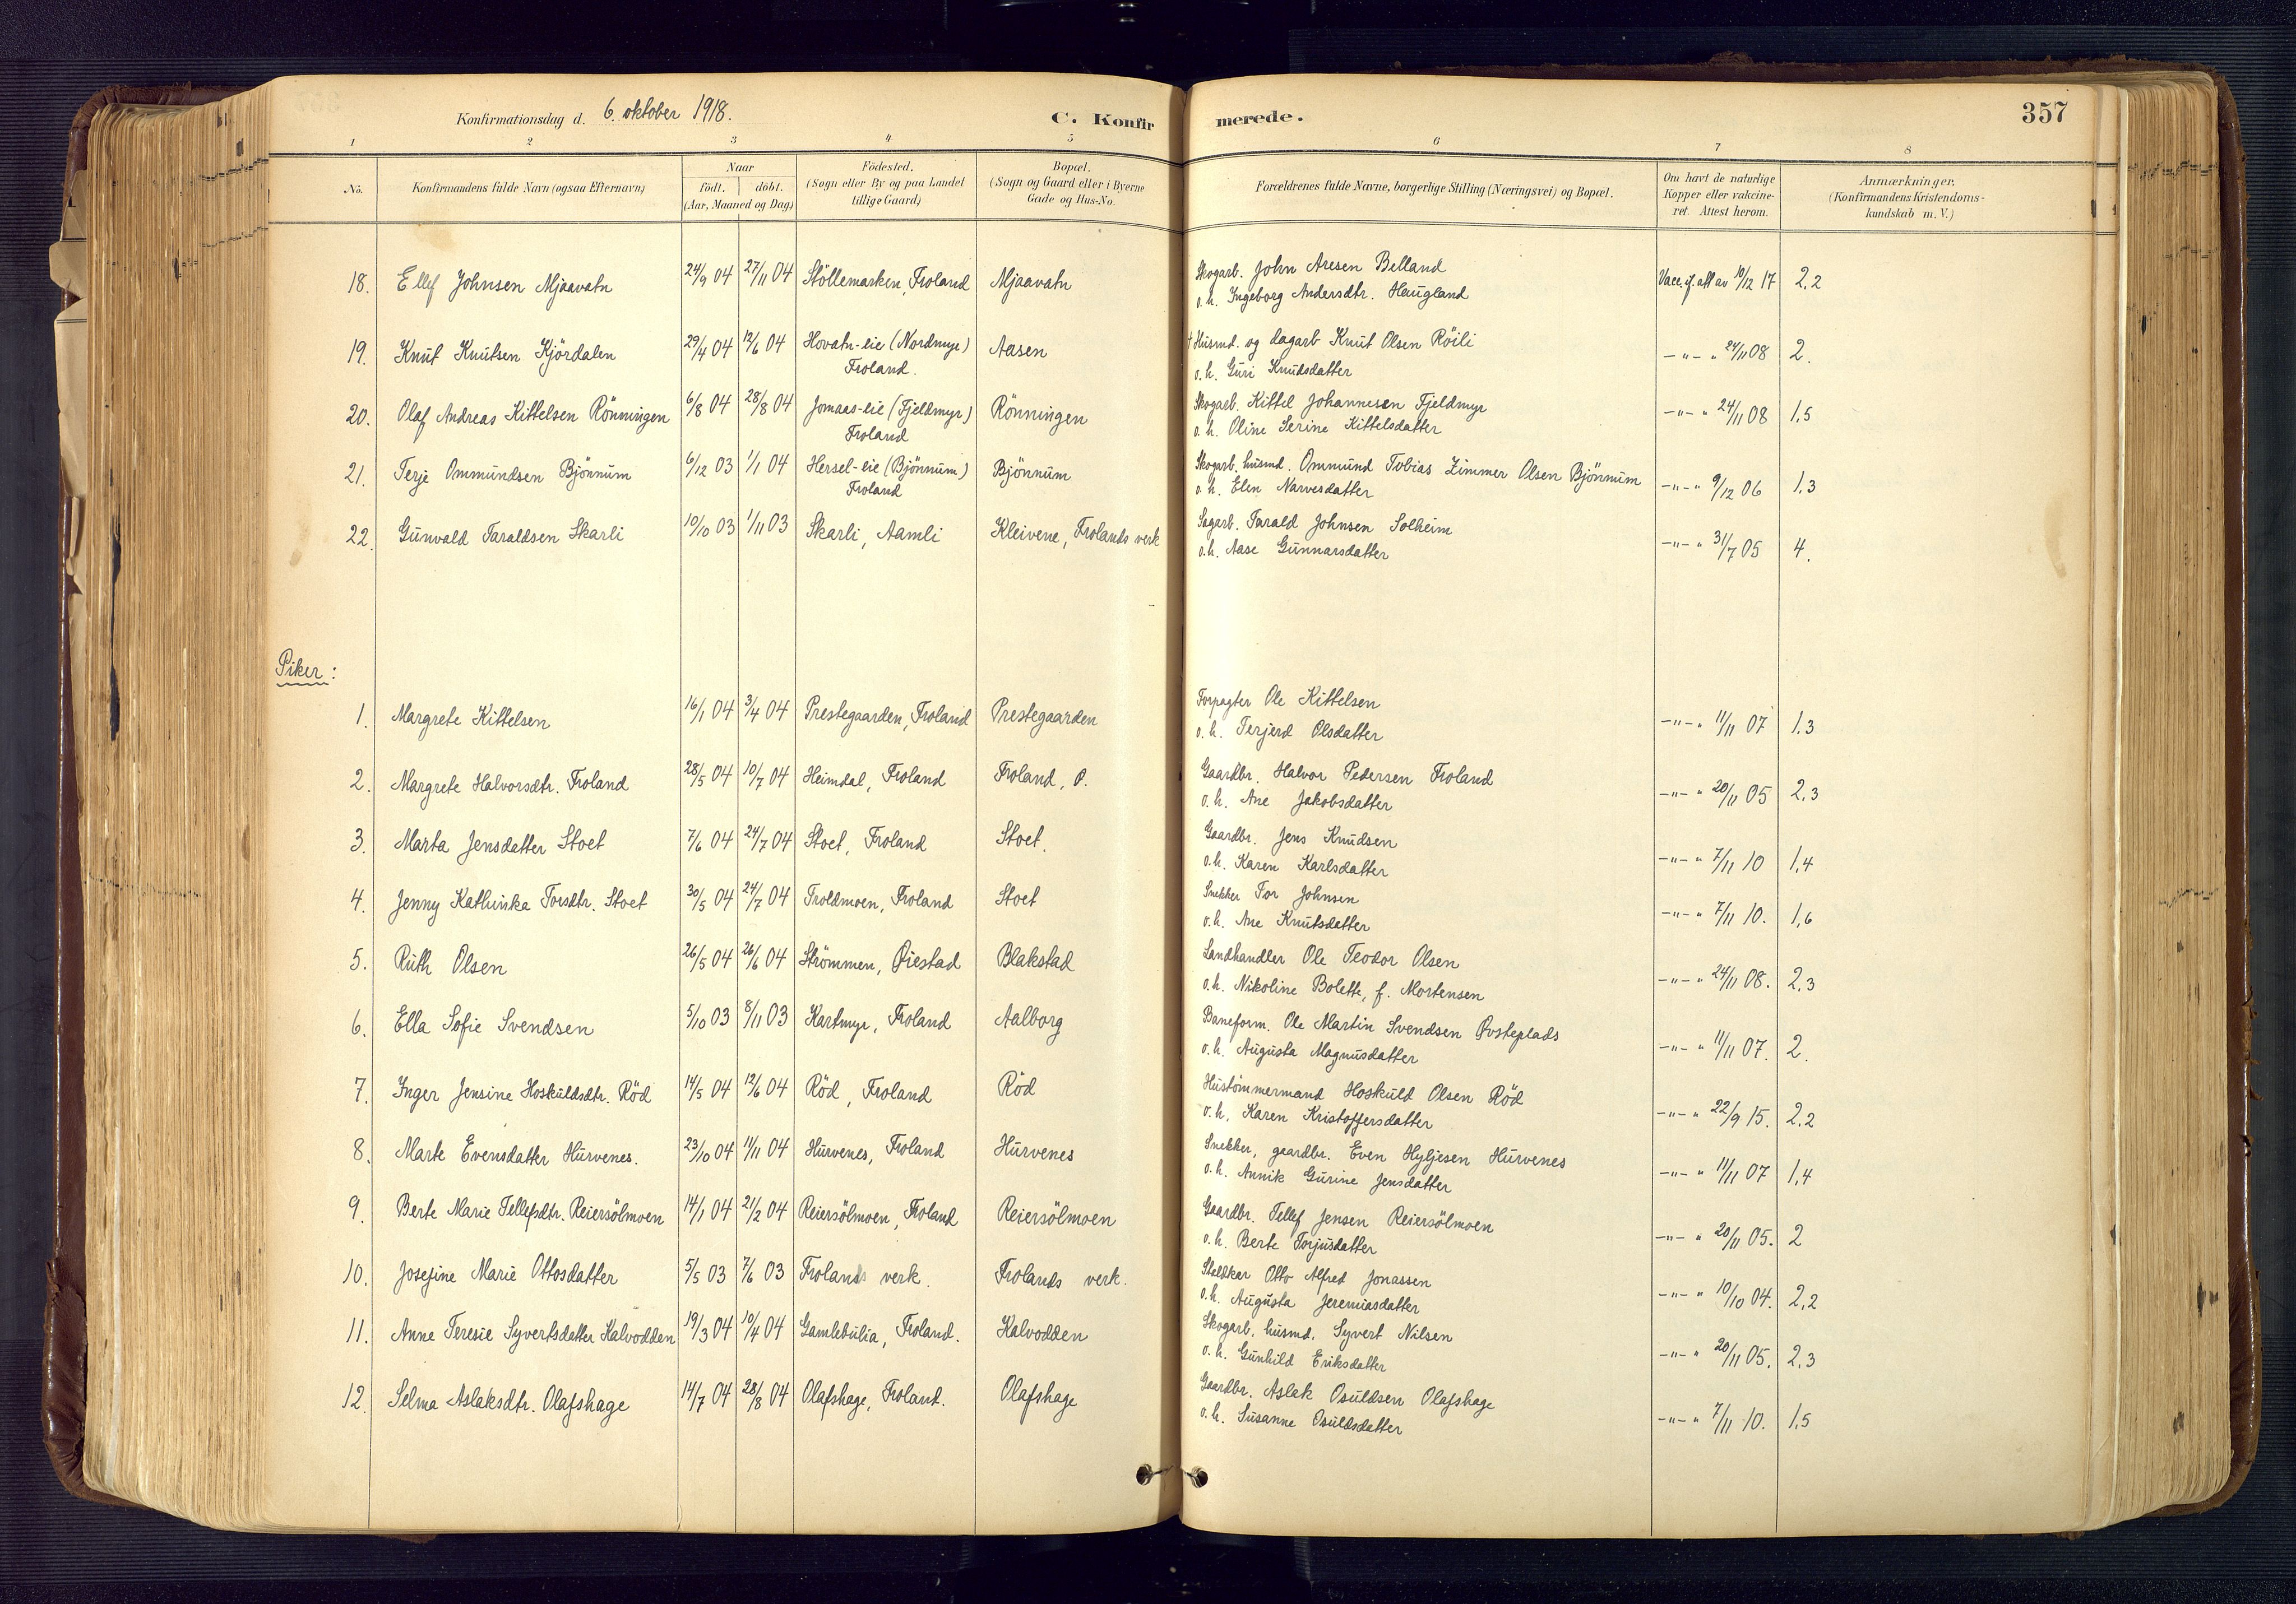 Konfirmationsdag d. 6. oktober 1918. C. Konfirmerede. 357
1 2 3 4 5 6 7 8
No. Konfirmandens fulde Navn (ogsaa Efternavn) Naar født. døbt. (Aar, Maaned og Dag) Födested. (Sogn eller By og paa Landet tillige Gaard) Bopæl. (Sogn og Gaard eller i Byerne Gade og Hus-No. Forældrenes fulde Navne, borgerlige Stilling (Næringsvei) og Bopæl. Om havt de naturlige Kopper eller vakcineret. Attest herom. Anmærkninger. (Konfirmandens Kristendomskundskab m. V.)
18. Ellef Johnsen Mjaavatn 24/9 04 27/11 04 Stöllemarken, Froland Mjaavatn Skogarb. John Aresen Belland Vacc. if. att av 10/12 17 2,2
o.h. Ingeborg Andersdtr. Haugland
19. Knut Knutsen Kjördalen 29/4 04 12/6 04 Hovatn-eie (Nordmyr) Froland. Aasen † Husmd. og dagarb Knut Olsen Röili -"- " 24/11 08 2.
o.h. Guri Knudsdatter
20. Olaf Andreas Kittelsen Rönningen 6/8 04 28/8 04 Jomaas-eie (Fjeldmyr) Froland Rönningen Skogarb. Kittel Johannesen Fjeldmyr -"- " 24/11 08 1,5
o.h. Oline Serine Kittelsdatter
21. Terje Ommundsen Bjönnum 6/12 03 1/1 04 Hersel-eie (Bjönnum) Froland Bjönnum Skogarb. husmd. Ommund Tobias Zimmer Olsen Bjönnum -"- " 9/12 06 1,3
o.h. Elen Narvesdatter
22. Gunvald Taraldsen Skarli 10/10 03 1/11 03 Skarli, Aamli Kleivene, Frolands verk Sagarb. Tarald Johnsen Solheim -"- " 31/7 05 4.
o.h. Aase Gunnarsdatter
Piker:
1. Margrete Kittelsen 16/1 04 3/4 04 Prestegaarden, Froland Prestegaarden Forpagter Ole Kittelsen -"- " 11/11 07 1,3
o.h. Terjerd Olsdatter
2. Margrete Halvorsdtr. Froland 28/5 04 10/7 04 Heimdal, Froland Froland, Ø. Gaardbr. Halvor Pedersen Froland -"- " 20/11 05 2,3
o.h. Ane Jakobsdatter
3. Marta Jensdatter Stoet 7/6 04 24/7 04 Stoet, Froland Stoet. Gaardbr. Jens Knudsen -"- " 7/11 10 1,4
o.h. Karen Karlsdatter
4. Jenny Kathinka Torsdtr. Stoet 30/5 04 24/7 04 Troldmoen, Froland Stoet Snekker Tor Johnsen -"- " 7/11 10. 1,6
o.h. Ane Knutsdatter
5. Ruth Olsen 26/5 04 26/6 04 Strömmen, Øiestad Blakstad Landhandler Ole Teodor Olsen -"- " 24/11 08. 2,3
o.h. Nikoline Bolette, f. Mortensen
6. Ella Sofie Svendsen 5/10 03 8/11 03 Kartmyr, Froland Aalborg Baneform. Ole Martin Svendsen Øvsteplads -"- " 11/11 07. 2.
o.h. Augusta Magnusdatter
7. Inger Jensine Hoskuldsdtr. Röd 14/5 04 12/6 04 Röd, Froland Röd Hustömmermand Hoskuld Olsen Röd -"- " 22/9 15. 2,2
o.h. Karen Kristoffersdatter
8. Marte Evensdatter Hurvenes. 23/10 04 11/11 04 Hurvenes, Froland Hurvenes Snekker, gaardbr. Even Hyljesen Hurvenes -"- " 11/11 07 1,4
o.h. Annik Gurine Jensdatter
9. Berte Marie Tellefsdtr. Reiersölmoen 14/1 04 21/2 04 Reiersölmoen, Froland Reiersölmoen Gaardbr. Tellef Jensen Reiersölmoen -"- " 20/11 05. 2
o.h. Berte Torjusdatter
10. Josefine Marie Ottosdatter 5/5 03 7/6 03 Frolands verk. Frolands verk. Staldkar Otto Alfred Jonassen -"- " 10/10 04. 2,2
o.h. Augusta Jeremiasdatter
11. Anne Teresie Syvertsdatter Kalvodden 19/3 04 10/4 04 Gamlebulia, Froland. Kalvodden Skogarb, husmd. Syvert Nilsen -"- " 20/11 05. 2,3
o.h. Gunhild Eriksdatter
12. Selma Aslaksdtr. Olafshage 14/7 04 28/8 04 Olafshage, Froland. Olafshage Gaardbr. Aslak Osuldsen Olafshage -"- " 7/11 10. 1,5
o.h. Susanne Osuldsdatter